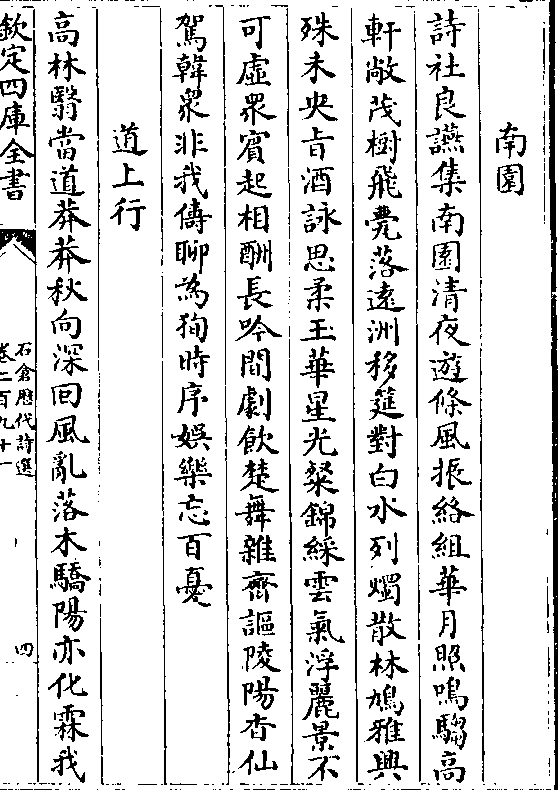 南園
詩社良讌集南園清夜遊條風振絡組華月照鳴騶高
軒敞茂樹飛甍落遠洲移筵對白水列燭散林鳩雅興
殊未央旨酒詠思柔玉華星光粲錦綵雲氣浮麗景不
可虛衆賓起相酬長吟間劇飲楚舞雜齊謳陵陽杳仙
駕韓衆非我儔聊為狥時序娛樂忘百憂
道上行
高林翳當道莽莽秋向深回風亂落木驕陽亦化霖我
欽定四庫全書
石倉歷代詩選
卷二百九十一
四